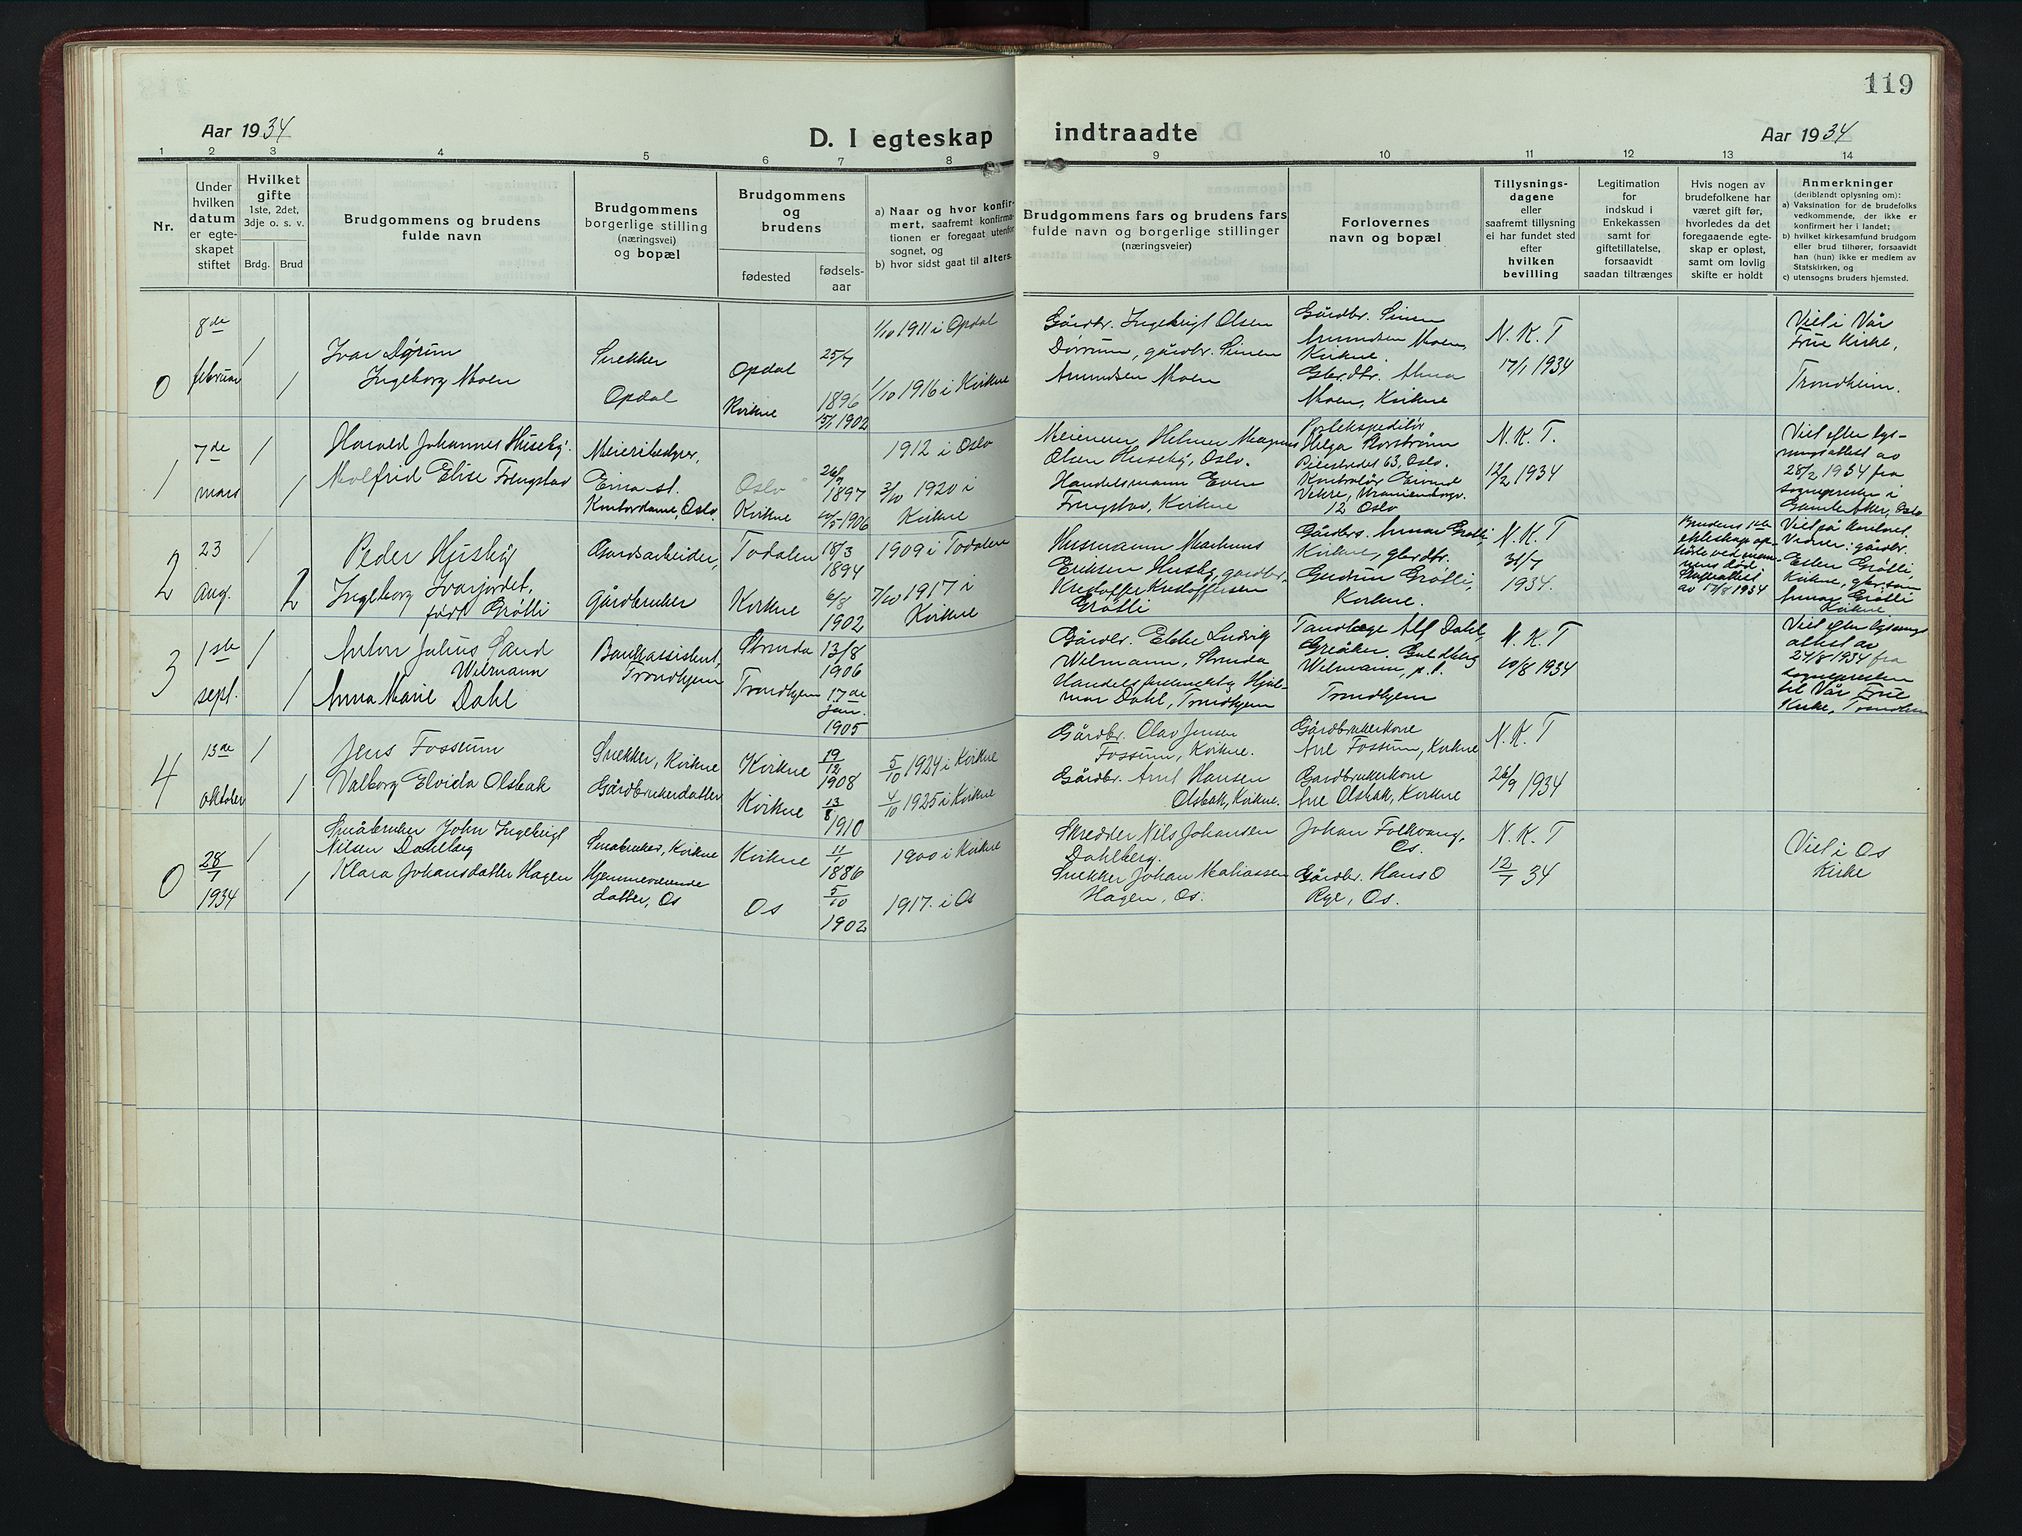 119
Aar 1934
D. I egteskap indtraadte
Aar 1934
1 2 3 4 5 6 7 8 9 10 11 12 13 14
Nr.
Under
hvilken
datum
er egte-
skapet
stiftet
Hvilket
gifte
1ste, 2det,
3dje o. s. v.
Brdg. Brud
Brudgommens og brudens
fulde navn
Brudgommens
borgerlige stilling
(næringsvei)
og bopæl
Brudgommens
og
brudens
fødested
fødsels-
aar
a) Naar og hvor konfir-
mert, saafremt konfirma-
tionen er foregaat utenfor
sognet, og
b) hvor sidst gaat til alters.
Brudgommens fars og brudens fars
fulde navn og borgerlige stillinger
(næringsveier)
Forlovernes
navn og bopæl
Tillysnings-
dagene
eller
saafremt tillysning
ei har fundet sted
efter
hvilken
bevilling
Legitimation
for
indskud i
Enkekassen
samt for
giftetillatelse,
forsaavidt
saadan tiltrænges
Hvis nogen av
brudefolkene har
været gift før,
hvorledes da det
foregaaende egte-
skap er opløst,
samt om lovlig
skifte er holdt
Anmerkninger
(deriblandt oplysning om):
a) Vaksination for de brudefolks
vedkommende, der ikke er
konfirmert her i landet;
b) hvilket kirkesamfund brudgom
eller brud tilhører, forsaavidt
han (hun) ikke er medlem av
Statskirken, og
c) utensogns bruders hjemsted.
0
8de
februar
1
1
Ivar Dørum
Ingeborg Moen
Snekker
Opdal
Opdal
Kvikne
25/7
1896
15/1 1902
1/10 1911 i Opdal
1/10 1916 i Kvikne
Gårdbr. Ingebrigt Olsen
Dørrum, gårdbr. Simen
Amundsen Moen
Gårdbr. Simen
Amundsen Moen,
Kvikne.
Gbrdbr. Alma
Moen, Kvikne
N. K. T
17/1 1934
Viet i Vår
Frue Kirke,
Trondheim.
1
7de
mars
1
1
Harald Johannes Huseby.
Molfrid Elise Frengstad
Meieribestyrer,
Eina st.
Kontordame, Oslo.
Oslo
Kvikne
26/9
1897
10/5 1906
1912 i Oslo
3/10 1920 i
Kvikne
Meierieier Helmer Magnus
Olsen Huseby, Oslo.
Handelsmann Even
Frengstad, Kvikne
Postekspeditør
Helga Norstrøm
Pilestredet 63, Oslo.
Kontrolør Eivind
Vekre, Uranienborgv.
12 Oslo
N. K. T.
12/2 1934
Viet efter lys-
ningsattest av
28/2 1934 fra
sognepresten i
Gamle Aker, Oslo
2
23
Aug.
1
2
Peder Husby
Ingeborg Ivarjordet,
født Grøtli
Gardsarbeider,
Gårdbruker
Todalen
Kvikne
18/3
1894
6/8
1902
1909 i Todalen
7/10 1917 i
Kvikne
Husmann Markus
Eriksen Husby, gardbr.
Kristoffer Kristoffersen
Grøtli
Gårdbrs. Annar Grøtli,
Kvikne, gbrdbr.
Gudrun Grøtli,
Kvikne.
N. K. T
31/7
1934.
Brudens 1ste
ekteskap op-
hørte ved man-
nens død.
Skifteattest
av 17/8 1934
Viet på kontoret.
Vidner: gårdbr.
Esten Grøtli,
Kvikne, gbr.sønn
Annar Grøtli
Kvikne
3
1ste
sept.
1
1
Anton Julius Sand
Wilmann
Anna Marie Dahl
Bankassistent,
Trondhjem
Strinda
Trondhjem
13/8
1906
17de
jan.
1905
Gårdbr. Ebbe Ludvig
Wilmann, Strinda
Handelsfuldmektig Hjal-
mar Dahl, Trondhjem
Tandlæge Alf Dahl,
Greåker, Guldberg
Wilmann, p. t.
Trondhjem
N. K. T
10/8 1934
Viet efter lysnings
attest av
24/8 1934 fra
sognepresten
til Vår Frue
Kirke, Trondheim
4
13de
oktober
1
1
Jens Fossum
Valborg Elvida Olsbak
Snekker, Kvikne
Gårdbrukerdatter
Kvikne
Kvikne
19/12
1908
13/8
1910
5/10 1924 i Kvikne
4/10 1925 i Kvikne
Gårdbr. Olav Jensen
Fossum, Kvikne.
Gårdbr. Arnt Hansen
Olsbak, Kvikne.
Gårdbrukerkone
Ane Fossum, Kvikne
Gardbrukerkone
Ane Olsbak, Kvikne
N. K. T
26/9 1934
0
28/7
1934
1
1
Småbruker John Ingebrigt
Nilsen Dahlberg
Klara Johansdatter Hagen
Småbruker, Kvikne
Hjemmeværende
datter, Os
Kvikne
Os
11/1
1886
5/10
1902
1900 i Kvikne
1917. i Os
Skredder Nils Johansen
Dahlberg.
Snekker Johan Mahiassen
Hagen, Os.
Johan Folkvang,
Os.
Gårdbr. Hans O
Rye, Os.
N. K. T
12/7 34
Viet i Os
Kirke